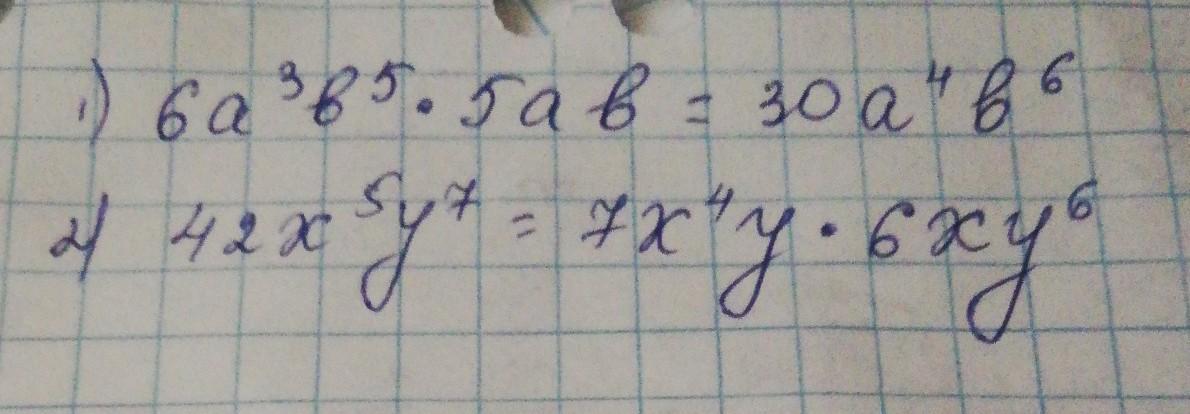 1) 6a³b⁵ · 5ab = 30a⁴b⁶
2) 42x⁵y⁷ = 7x⁴y · 6xy⁶